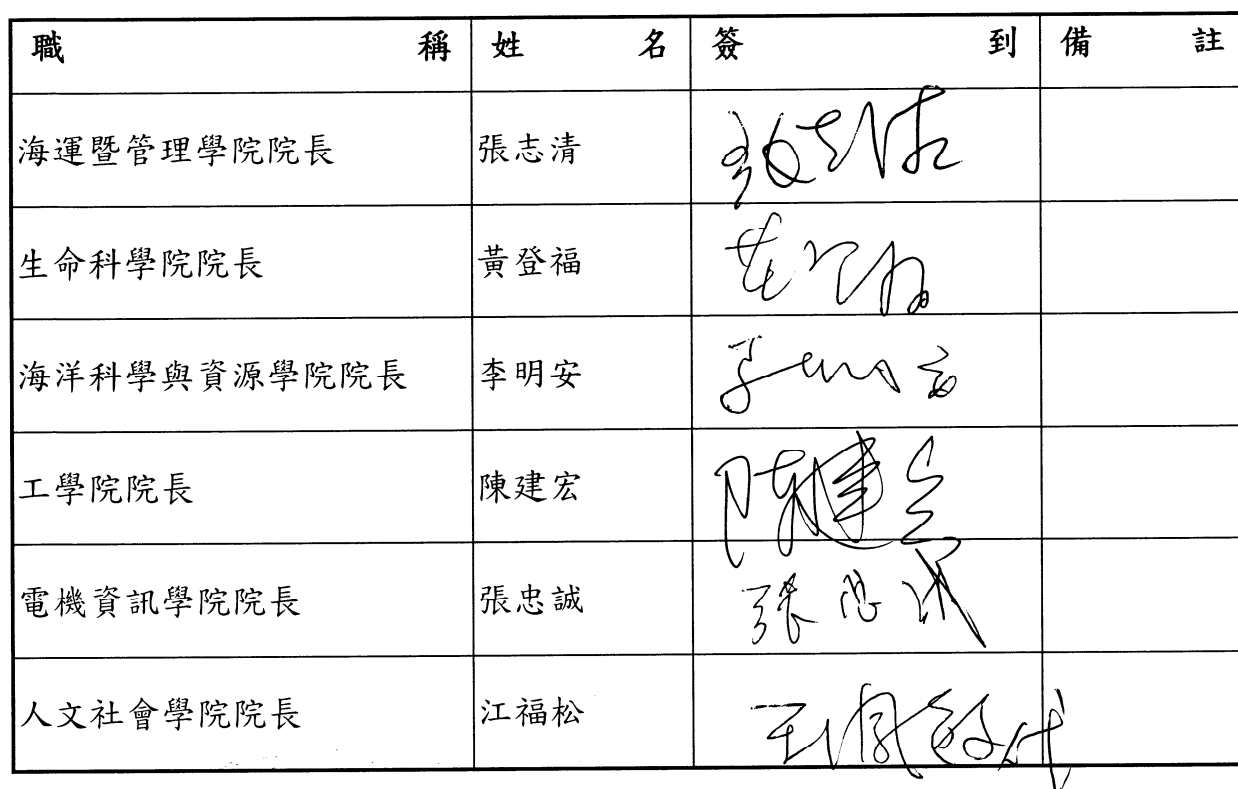 職稱 姓名 簽到 備註
海運暨管理學院院長 張志清 張志清
生命科學院院長 黃登福
海洋科學與資源學院院長 李明安 李明安
工學院院長 陳建宏 陳建宏
電機資訊學院院長 張忠誠 張忠誠
人文社會學院院長 江福松 代